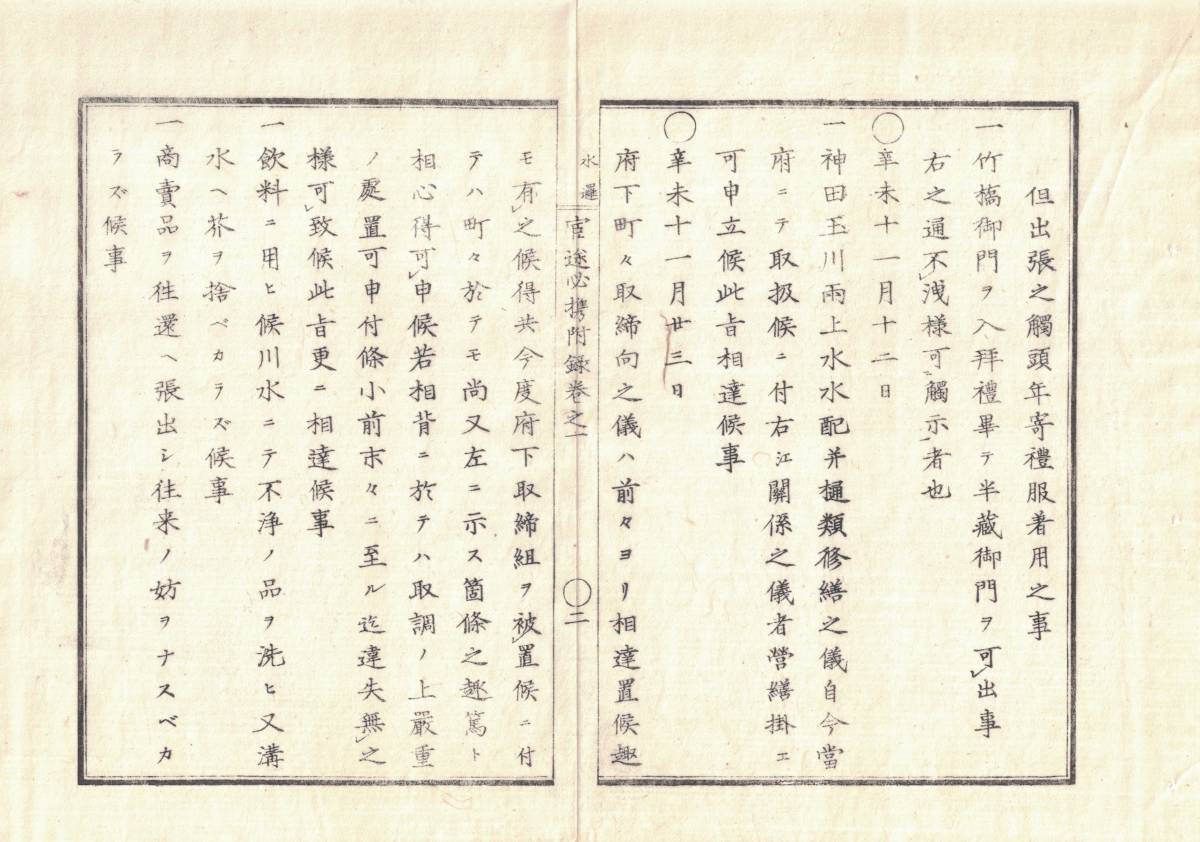 但出張之觸頭年寄禮服著用之事
一竹橋御門ヲ入拜禮畢テ半藏御門ヲ可出事
右之通不洩樣可觸示者也
〇辛未十一月十二日
一神田玉川兩上水水配并樋類修繕之儀自今當
府ニテ取扱候ニ付右江關係之儀者營繕掛エ
可申立候此旨相達候事
〇辛未十一月廿三日
府下町々取締向之儀ハ前々ヨリ相達置候趣
官途必攜附録卷之一
〇二
モ有之候得共今度府下取締組ヲ被置候ニ付
テハ町々於テモ尚又左ニ示ス箇條之趣篤ト
相心得可申候若相背ニ於テハ取調ノ上嚴重
ノ處置可申付條小前末々ニ至ル迄違失無之
樣可致候此旨更ニ相達候事
一飲料ニ用ヒ候川水ニテ不浄ノ品ヲ洗ヒ又溝
水ヘ芥ヲ捨ベカラズ候事
一商賣品ヲ徃還ヘ張出シ往来ノ妨ヲナスベカ
ラズ候事